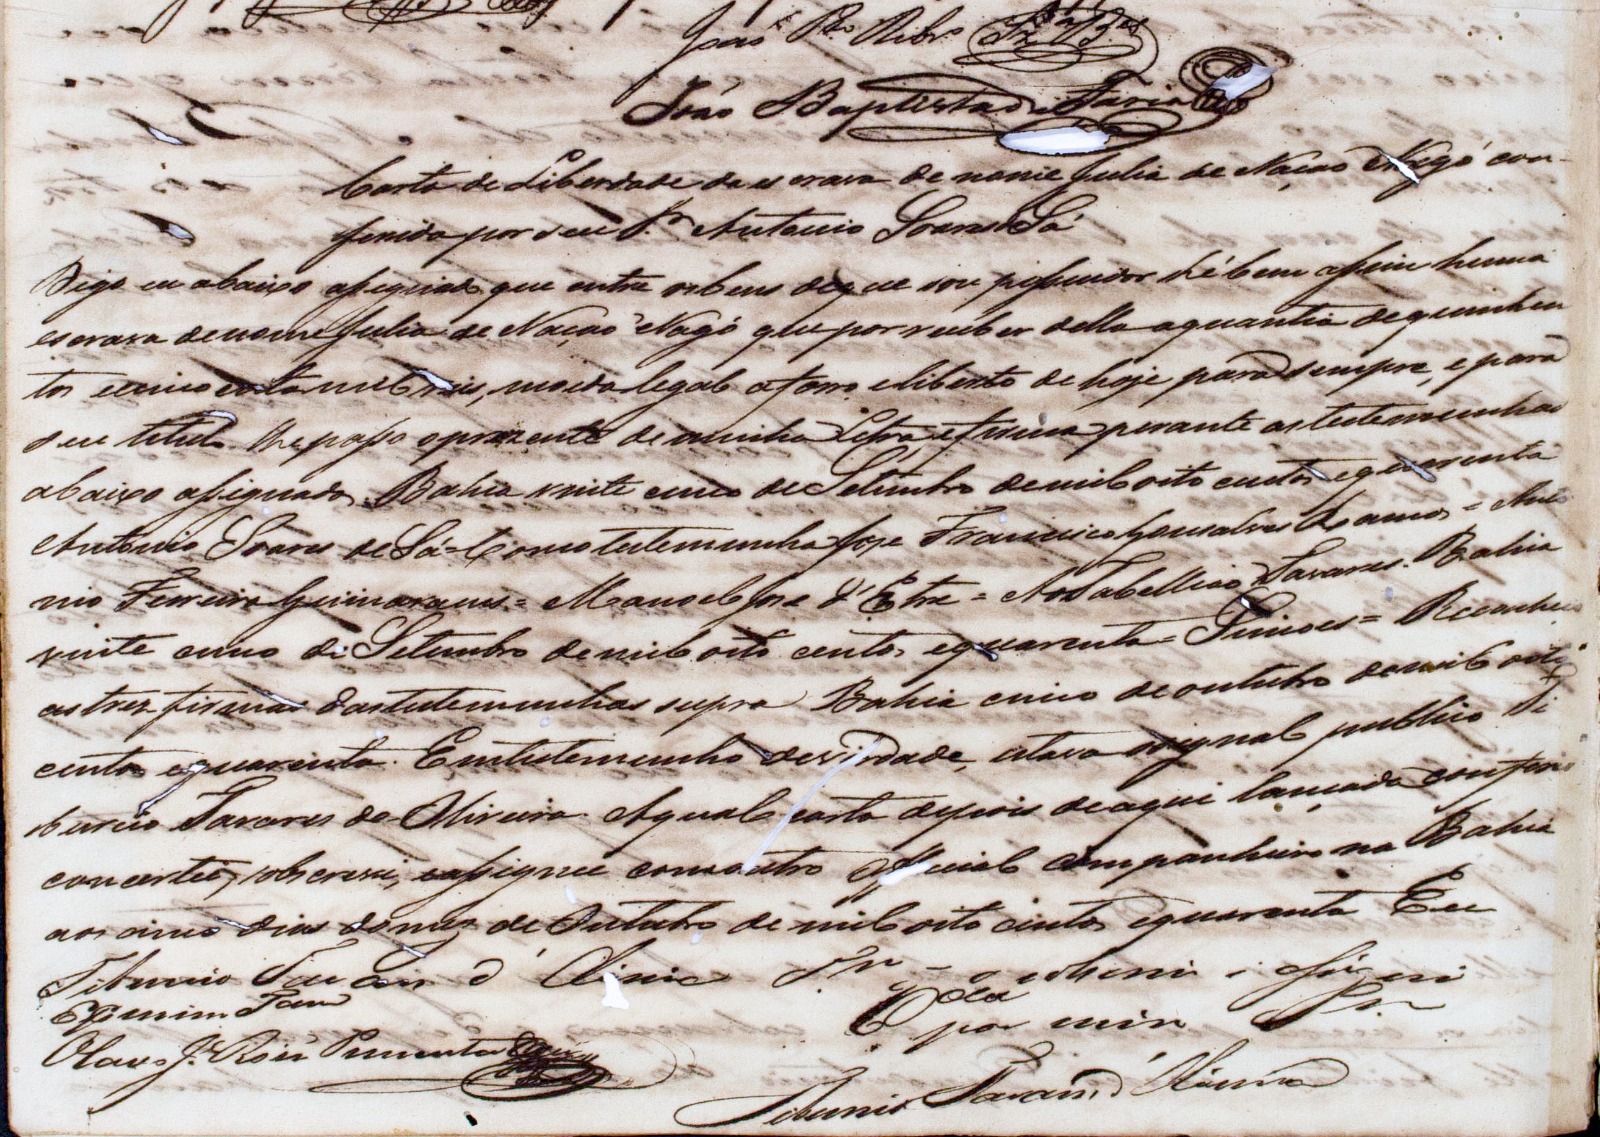 João Baptista de Faria
Carta de Liberdade da escrava de nome Julia de Nação Nagô con-
ferida por seu Sr. Antonio Soares Sá
Digo eu abaixo assignado que entre os bens de que sou possuidor hé bem assim huma
escrava de nome Julia de Nação Nagô que por receber della a quantia de quinhen
tos e cincoenta mil reis, moeda legal a forro e liberto de hoje para sempre, e para
seu titulo lhe passo o prezente de minha Letra e firma perante as testemunhas
abaixo assignadas. Bahia vinte cinco de Setembro de mil oito centos e quarenta
Antonio Soares de Sá = Como testemunha Joze Francisco Gonsalves Ramos = Anto
nio Ferreira Guimaraens = Manoel Joze d'Etre = Ao Tabellião Tavares. Bahia
vinte cinco de Setembro de mil oito centos e quarenta = Simoes = Reconheço
as tres firmas das testemunhas supra Bahia cinco de outubro de mil oito
centos e quarenta. Em testemunho de verdade, estava o signal publico Ti
burcio Tavares de Oliveira. A qual carta depois de aqui lançada conferi
concertei, sobscrevi, e assignei com outro Official companheiro na Bahia
aos cinco dias do mez de Outubro de mil oito centos e quarenta Eu
Tiburcio Tavares d'Oliveira Tm o sobscrevi e assignei
E por mim Tam
Cda por mim Tm
Olavo J. Roiz Pimenta
Tiburcio Tavares d'Oliveira